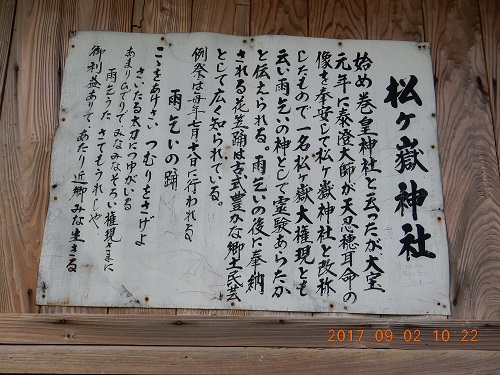 松ヶ嶽神社
始め巻皇神社と云ったが、大宝
元年に泰澄大師が天忍穂耳命の
像を奉安して松ヶ嶽神社と改称
したもので一名松ヶ嶽大権現とも
云い雨乞いの神として霊験あらたか
と伝えられる。雨乞いの後に奉納
される花笠踊は古式豊かな郷土民芸
として広く知られている。
例祭は毎年七月十八日に行われる
雨乞いの踊
こゝをあけさい つむりをさげよ
さいたる太刀につゆがいる
あまりひでりでみなみなそろい権現さまに
雨乞うた さてもうれしや
御利益ありて、あたり近郷みな生きる
2017 09 02 10 22